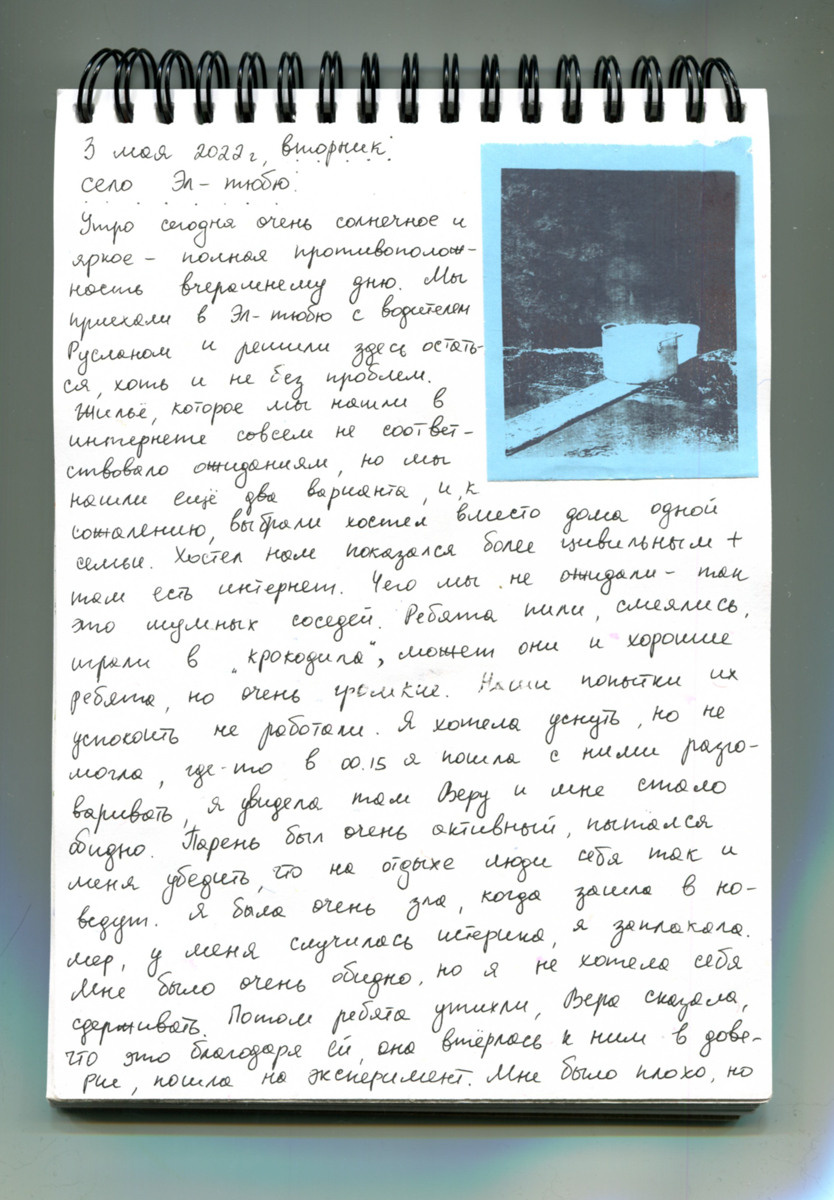 3 мая 2022 г, вторник.
село Эл-тюбю.
Утро сегодня очень солнечное и
яркое - полная противополож-
ность вчерашнему дню. Мы
приехали в Эл-тюбю с водителем
Русланом и решили здесь остать-
ся, хоть и не без проблем.
Жильё, которое мы нашли в
интернете совсем не соответ-
ствовало ожиданиям, но мы
нашли ещё два варианта, и, к
сожалению, выбрали хостел вместо дома одной
семьи. Хостел нам показался более цивильным +
там есть интернет. Чего мы не ожидали - так
это шумных соседей. Ребята пили, смеялись,
играли в „крокодила", может они и хорошие
ребята, но очень громкие. Наши попытки их
успокоить не работали. Я хотела уснуть, но не
могла, где-то в 00.15 я пошла с ними разго-
варивать, я увидела там Веру и мне стало
обидно. Парень был очень активный, пытался
меня убедить, что на отдыхе люди себя так и
ведут. Я была очень зла, когда зашла в но-
мер, у меня случилась истерика, я заплакала.
Мне было очень обидно, но я не хотела себя
сдерживать. Потом ребята утихли, Вера сказала,
что это благодаря ей, она втёрлась к ним в дове-
рие, пошла на эксперимент. Мне было плохо, но